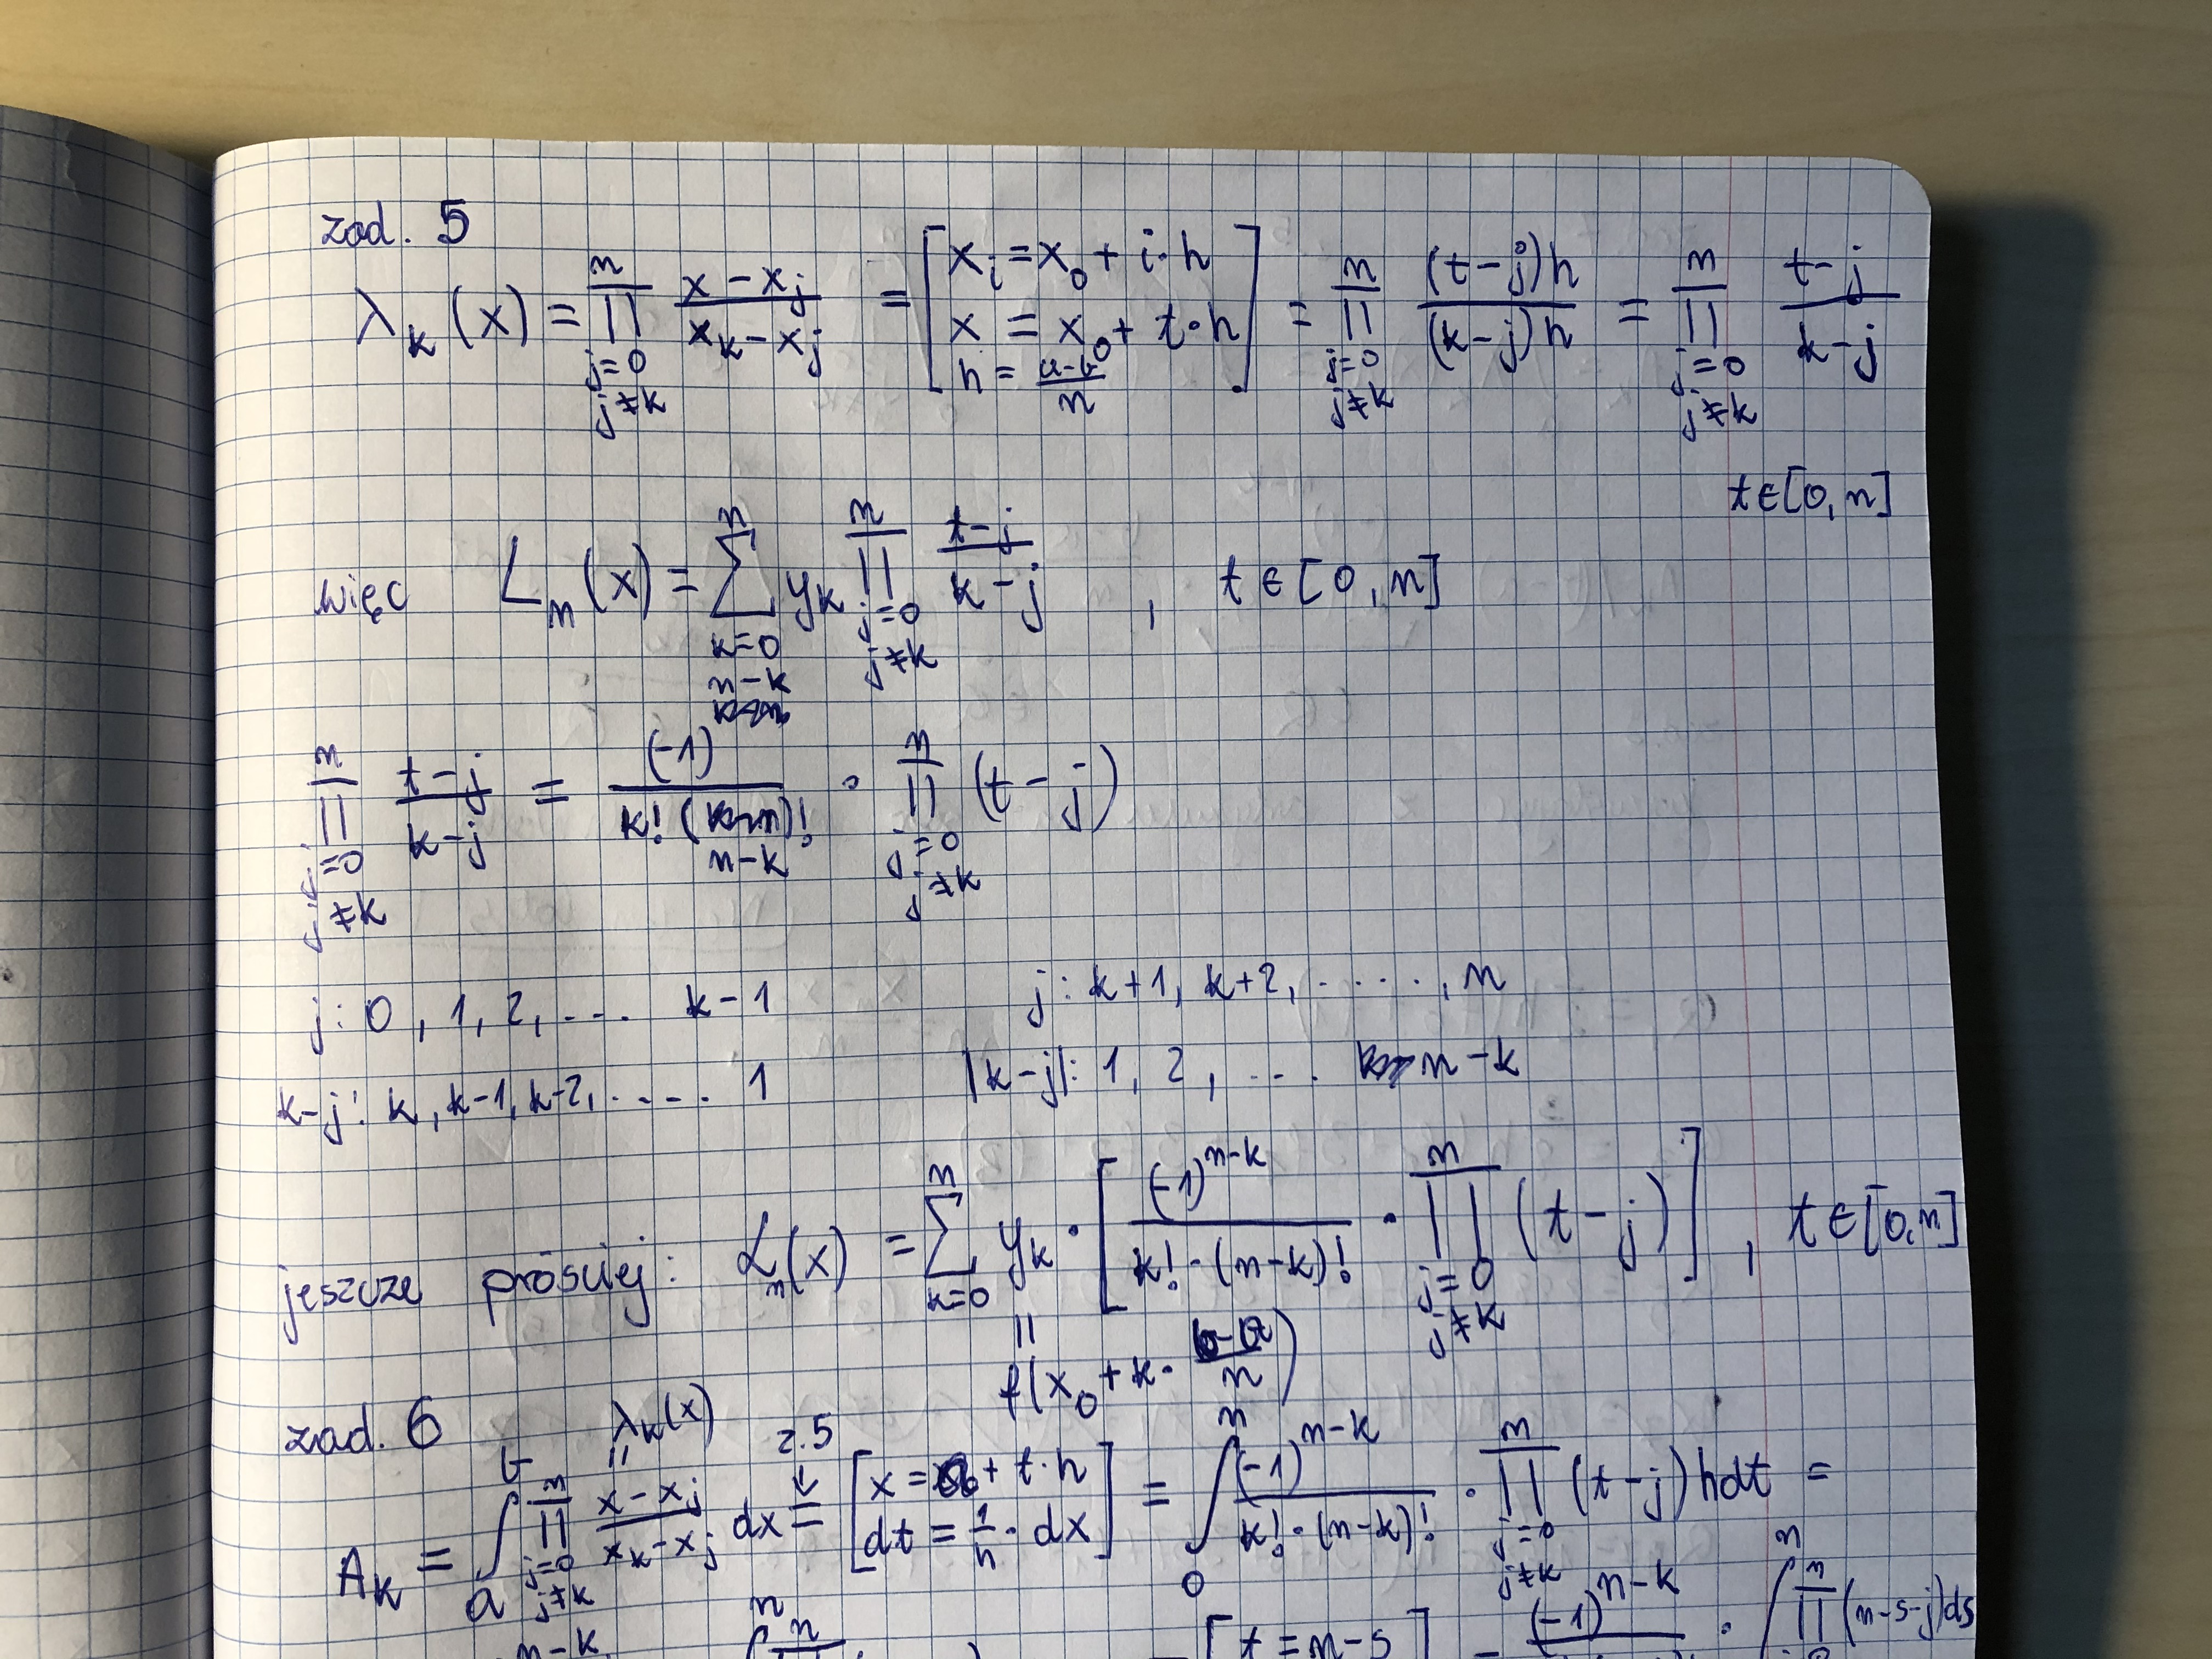 zad. 5
λ_k(x) = ∏_{j=0, j≠k}^{n} (x - x_j)/(x_k - x_j) = [x_i = x_0 + i·h; x = x_0 + t·h; h = (a-b)/n] = ∏_{j=0, j≠k}^{n} ((t-j)h)/((k-j)h) = ∏_{j=0, j≠k}^{n} (t-j)/(k-j)
t∈[0,n]
więc L_n(x) = ∑_{k=0}^{n} y_k ∏_{j=0, j≠k}^{n} (t-j)/(k-j) , t∈[0,n]
∏_{j=0, j≠k}^{n} (t-j)/(k-j) = (-1)^{n-k}/(k!(n-k)!) · ∏_{j=0, j≠k}^{n} (t-j)
j: 0, 1, 2, ... k-1 j: k+1, k+2, ....., n
k-j: k, k-1, k-2, ..... 1 |k-j|: 1, 2, ... n-k
jeszcze prościej: L_n(x) = ∑_{k=0}^{n} y_k · [(-1)^{n-k}/(k!·(n-k)!) · ∏_{j=0, j≠k}^{n} (t-j)] , t∈[0,n]
=
f(x_0 + k·(b-a)/n)
zad. 6
λ_k(x) = z.5
A_k = ∫_a^b ∏_{j=0, j≠k}^{n} (x-x_j)/(x_k-x_j) dx = [x = + t·h; dt = 1/h · dx] = ∫_0^n (-1)^{n-k}/(k!·(n-k)!) · ∏_{j=0, j≠k}^{n} (t-j) h dt =
n-k n n [t = n-s] = (-1)^{n-k} · ∫^n ∏^n (n-s-j)ds